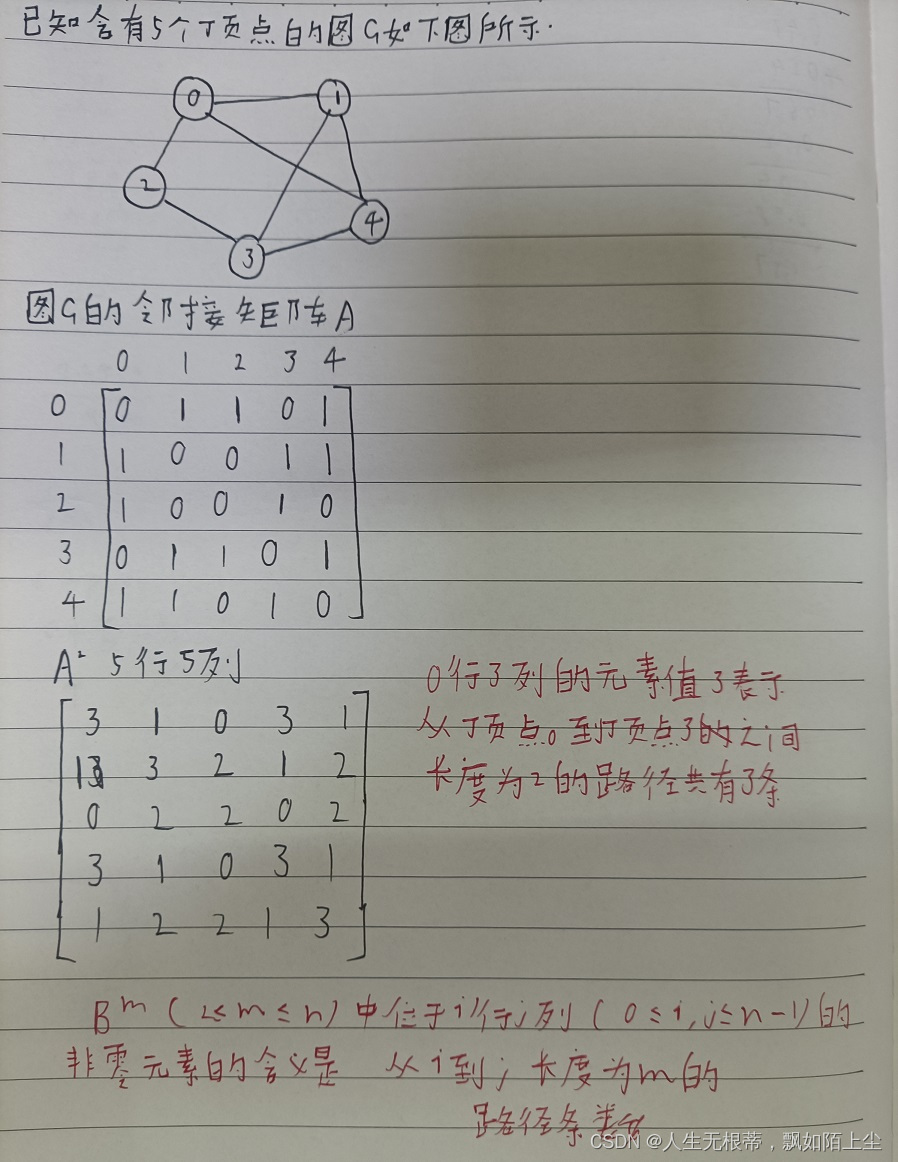 已知含有5个顶点的图G如下图所示.
0 1
2
4
3
图G的邻接矩阵A
0 1 2 3 4
0 0 1 1 0 1
1 1 0 0 1 1
2 1 0 0 1 0
3 0 1 1 0 1
4 1 1 0 1 0
A² 5行5列
3 1 0 3 1
1 3 2 1 2
0 2 2 0 2
3 1 0 3 1
1 2 2 1 3
0行3列的元素值3表示
从顶点0到顶点3的之间
长度为2的路径共有3条
Bᵐ (2≤m≤n) 中位于i行j列 (0≤i,j≤n-1) 的
非零元素的含义是 从i到j长度为m的
路径条数
CSDN @人生无根蒂,飘如陌上尘